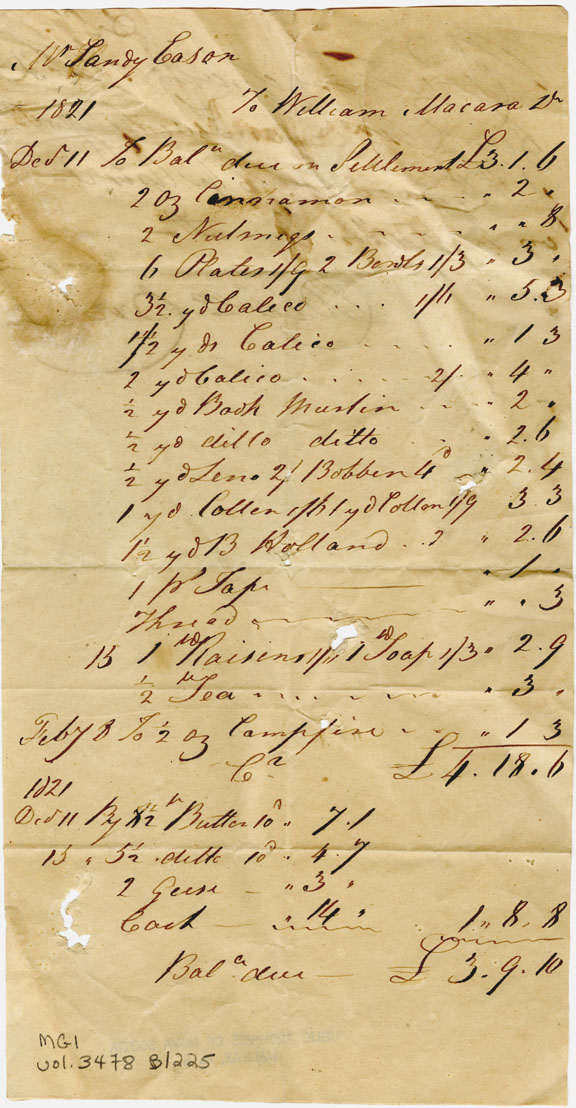 Mr Sandy Eason
1821 To William Macara Dr
Decr 11 To Balce due on Settlement £3.1.6
2 oz Cinnamon " 2 "
2 Nutmegs " " 8
6 Plates 1/9 2 Bowls 1/3 " 3 "
3½ yd Calico 1/6 " 5.3
1½ yds Calico " 1 3
2 yd Calico 2/ " 4 "
½ yd Book Muslin " 2 "
½ yd ditto ditto " 2.6
½ yd Leno 2/ Bobben 4d " 2.4
1 yd Cotten 1/6 1 yd Cotton 1/9 3 3
1½ yd B Holland " 2.6
1 Ps Tape " 1 "
Thread " " 3
15 1 lb Raisins 1/6 1 lb Soap 1/3 " 2.9
½ lb Tea " 3 "
Feby 8 To ½ oz Campfire " 1 3
Cr £4.18.6
1821
Decr 11 By 8½ lb Butter 10d " 7.1
15 " 5½ ditto 10d " 4.7
2 Geese " 3 "
Cash " 14 " 1 " 8 . 8
Balce due £3.9.10
MG1
vol. 3478 B/225